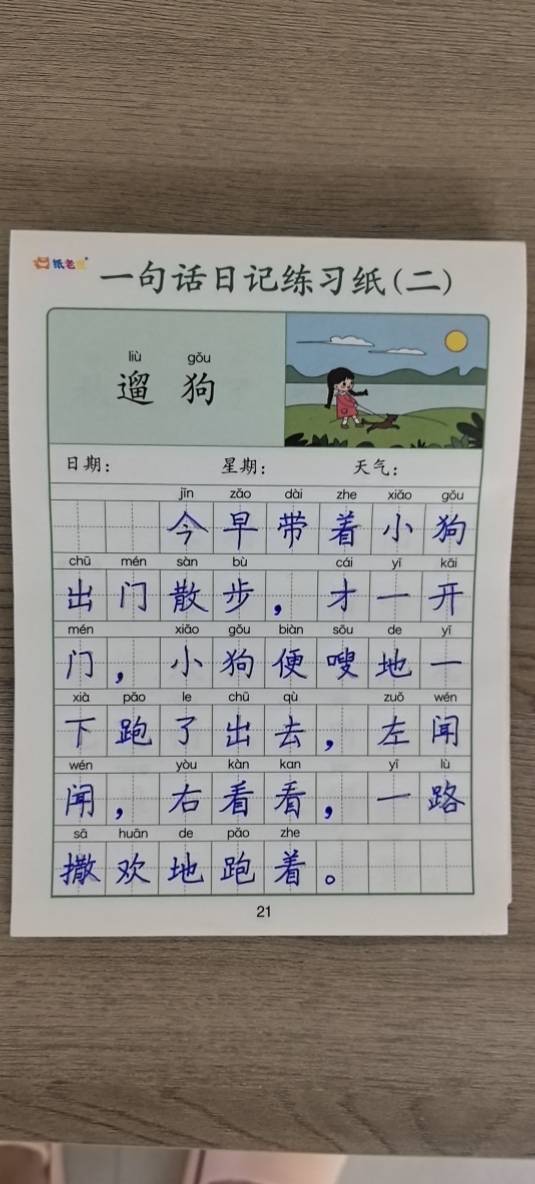 纸老虎
一句话日记练习纸(二)
liù gǒu
遛狗
日期： 星期： 天气：
jīn zǎo dài zhe xiǎo gǒu
今早带着小狗
chū mén sàn bù cái yī kāi
出门散步，才一开
mén xiǎo gǒu biàn sōu de yī
门，小狗便嗖地一
xià pǎo le chū qù zuǒ wén
下跑了出去，左闻
wén yòu kàn kan yī lù
闻，右看看，一路
sā huān de pǎo zhe
撒欢地跑着。
21